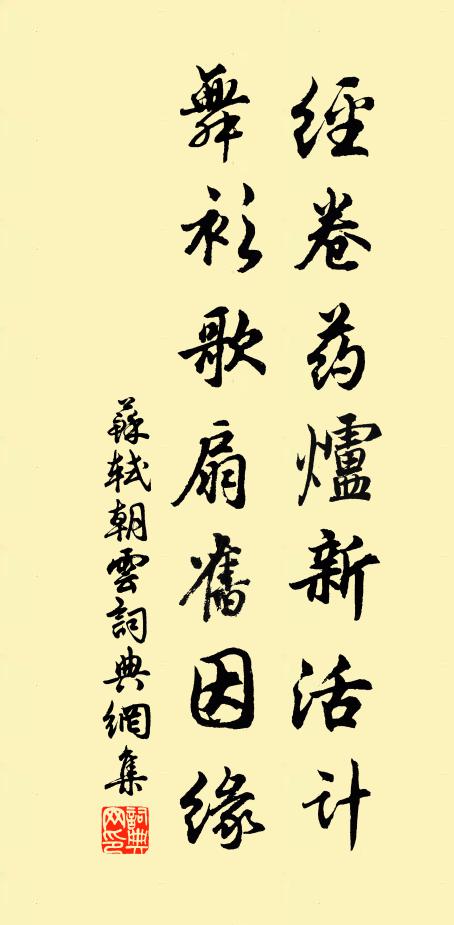 經卷药爐新活計
舞衫歌扇舊因緣
蘇軾朝雲詞典網集
詞典网印